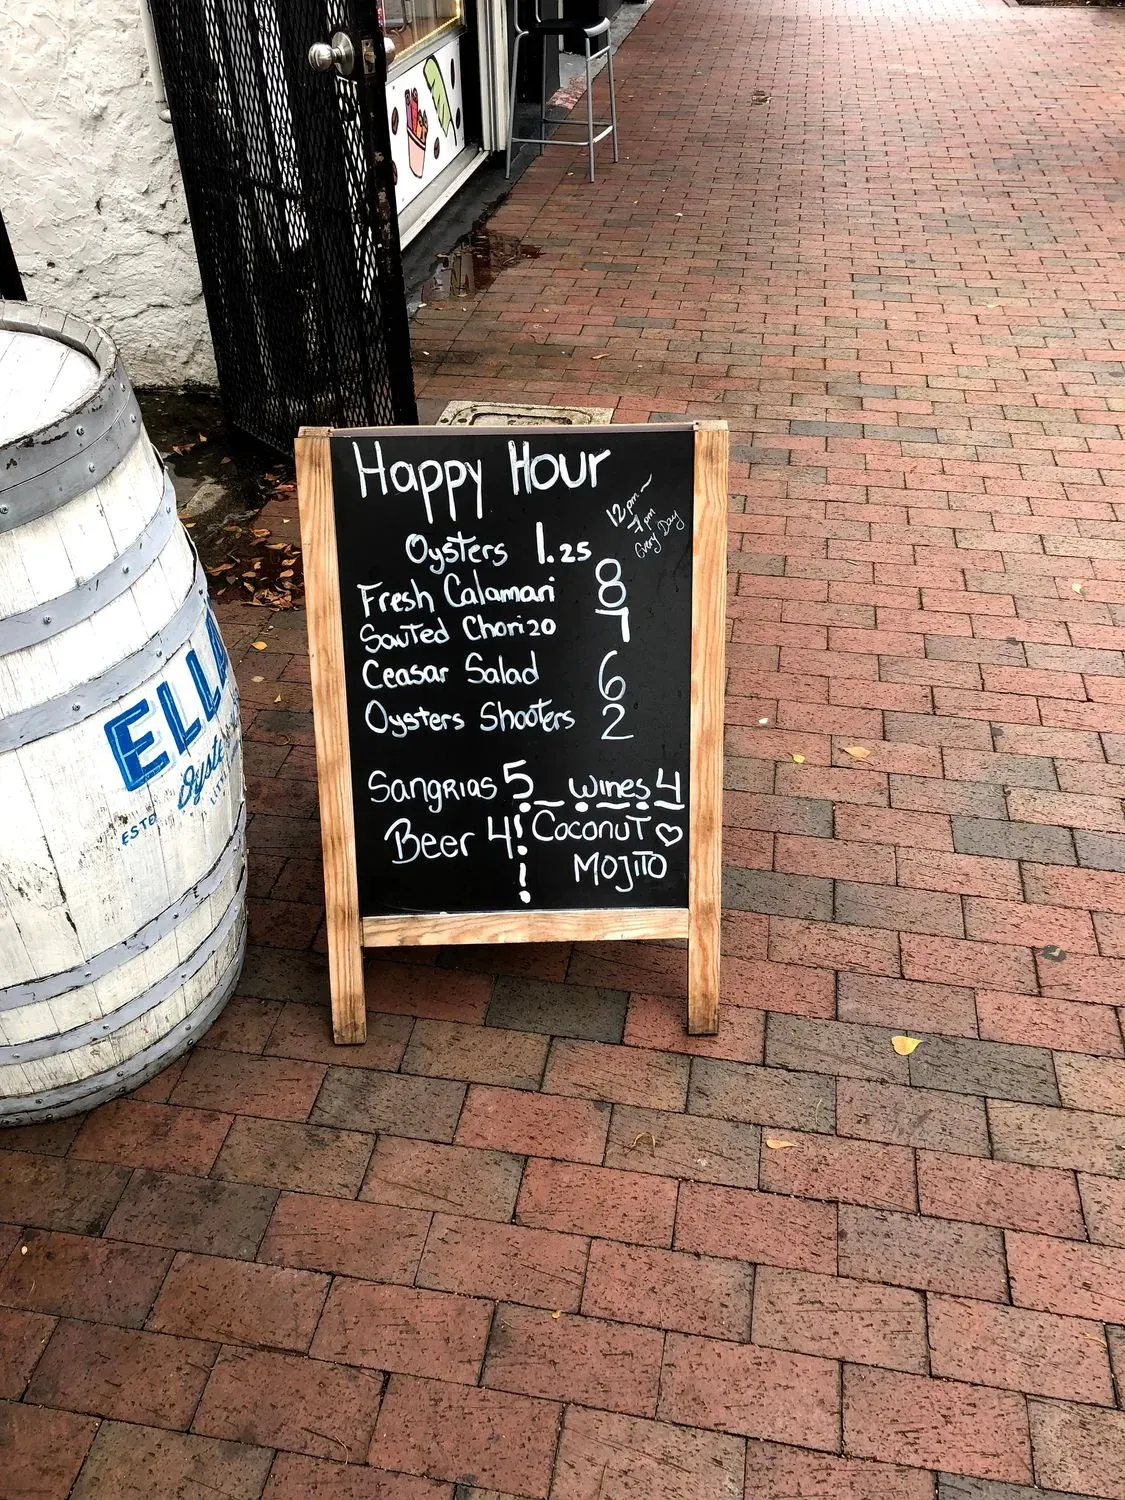 Happy Hour
12pm~
7pm
Every Day
Oysters 1.25
Fresh Calamari 8
Sauted Chorizo 7
Ceasar Salad 6
Oysters Shooters 2
Sangrias 5
Wines 4
Beer 4
Coconut
Mojito
ELLA
Oyste
ESTE